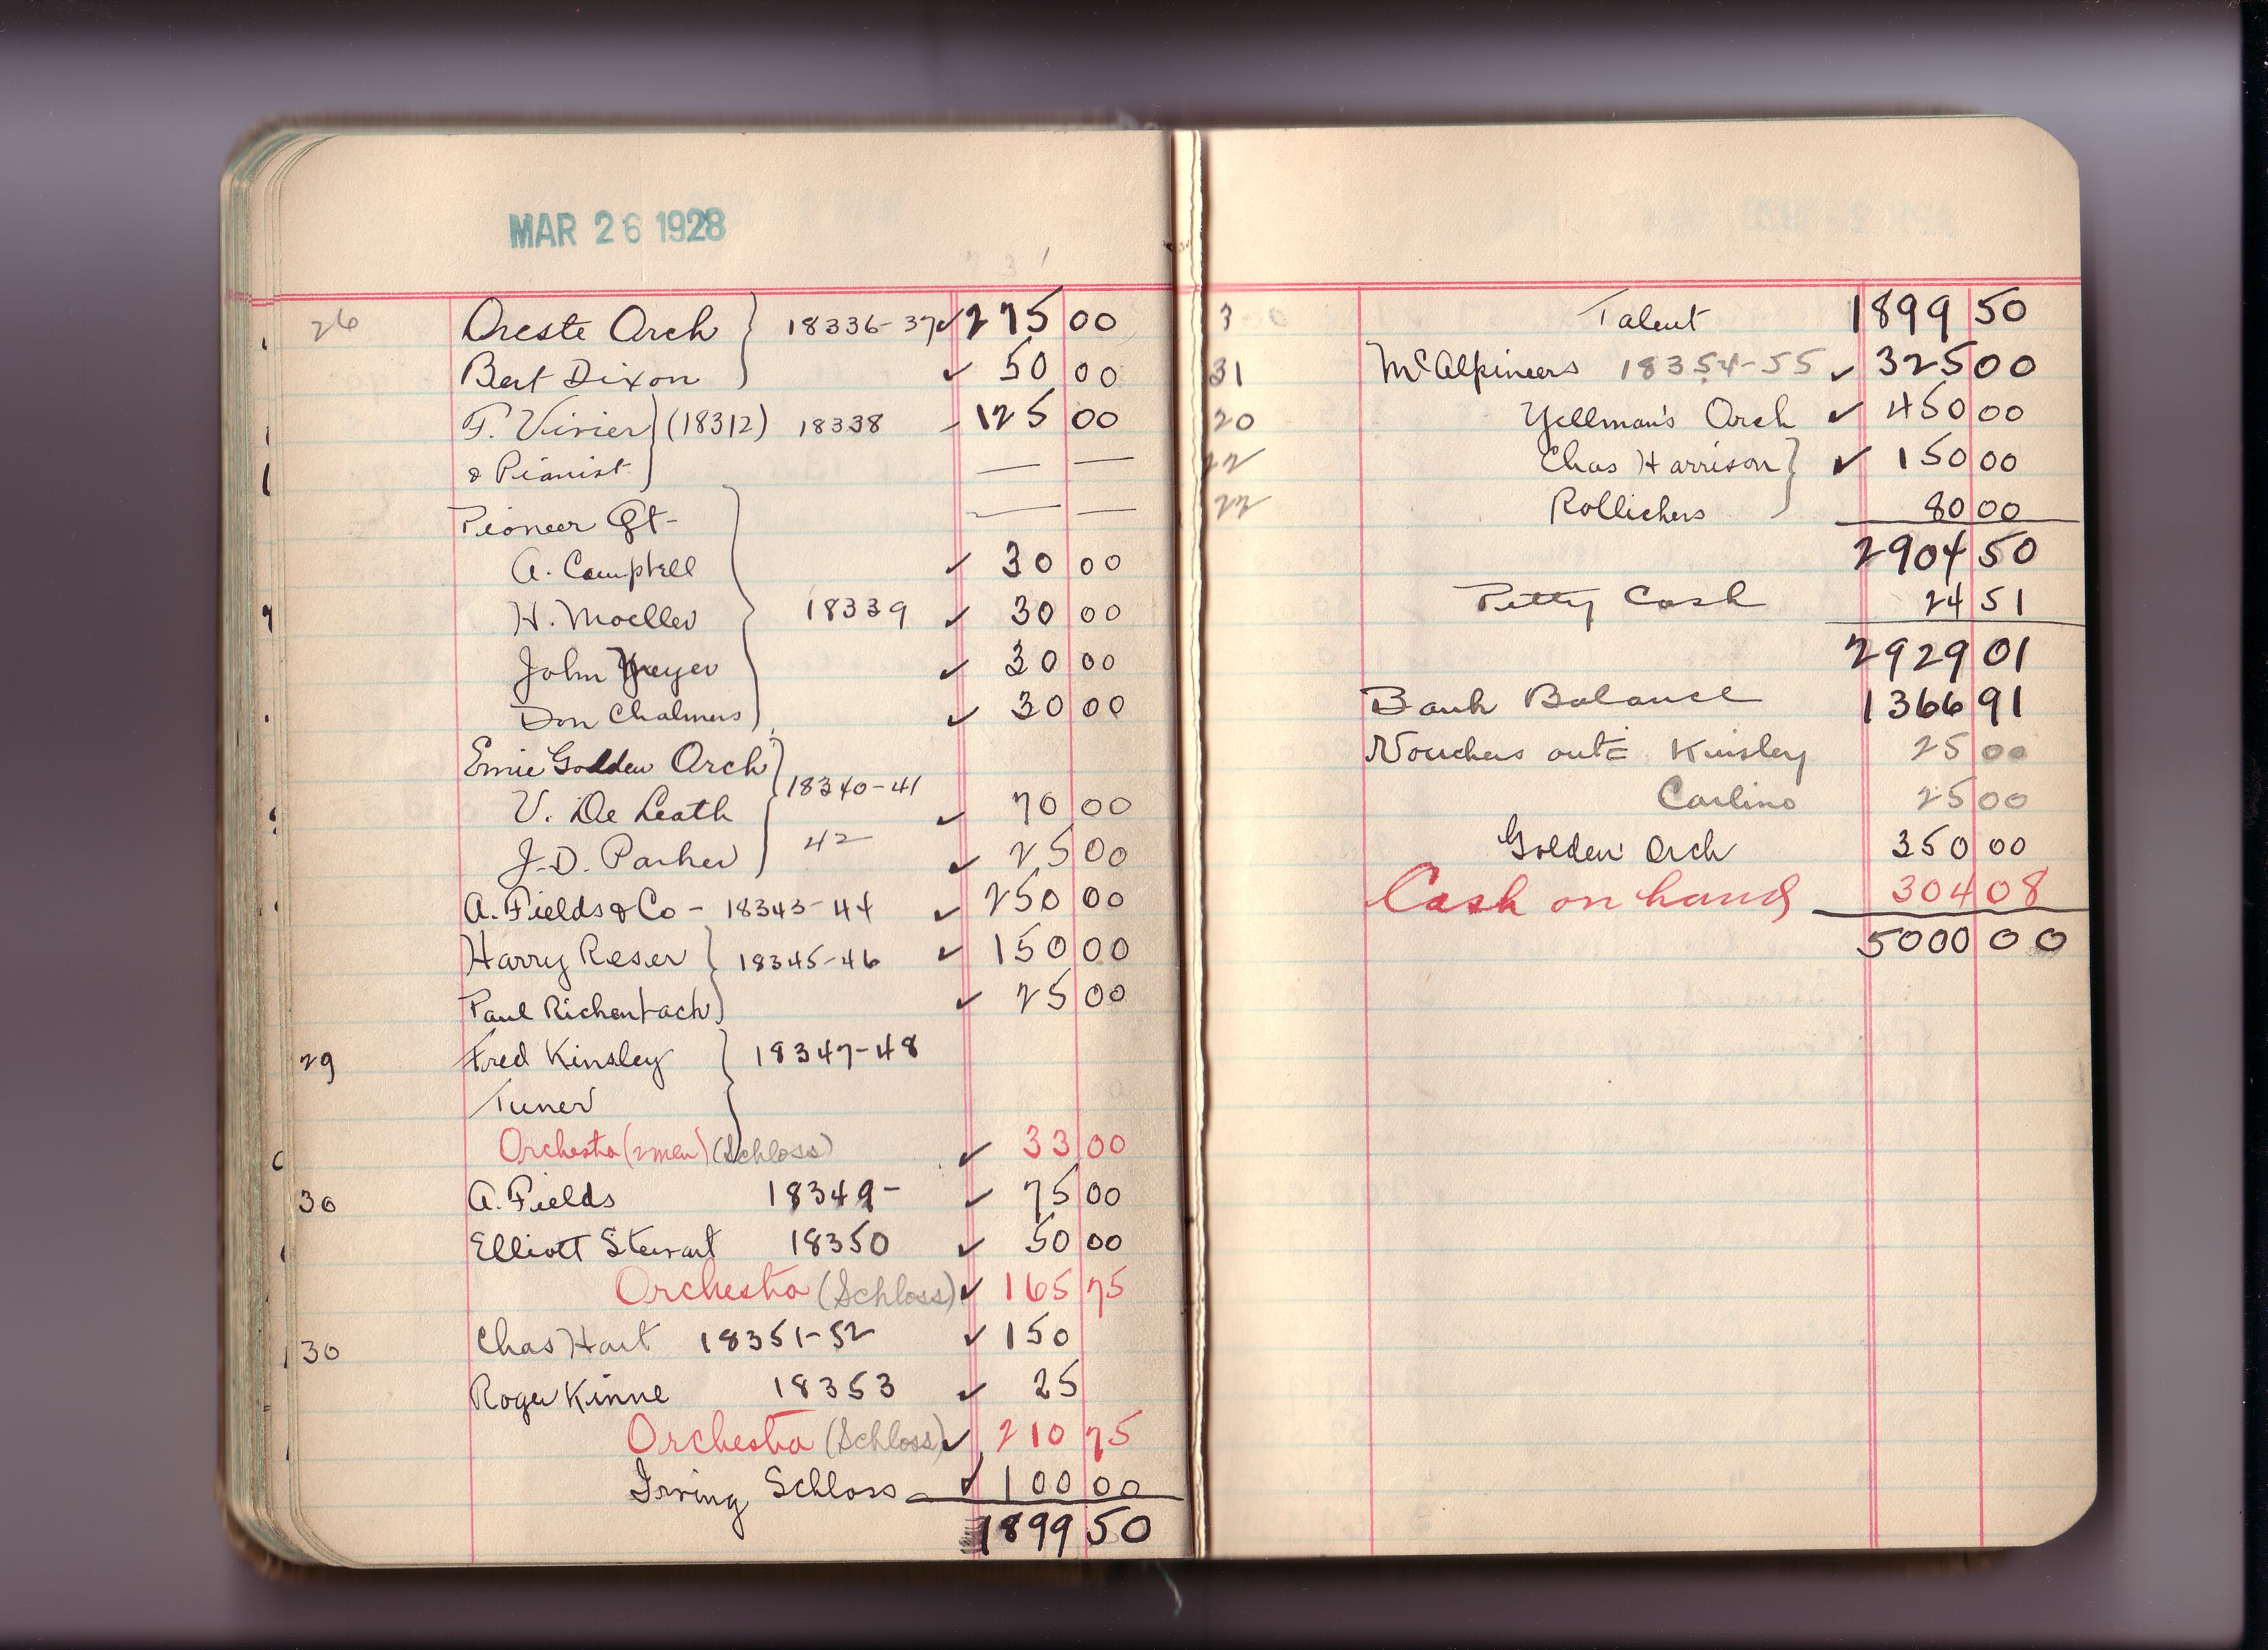 MAR 26 1928
26 Oreste Orch 18336-37 ✓ 275 00
Bert Dixon ✓ 50 00
T. Virier (18312) 18338 - 125 00
& Pianist — —
Pioneer Qt- — —
A. Campbell ✓ 30 00
H. Moeller 18339 ✓ 30 00
John Meyer ✓ 30 00
Don Chalmers ✓ 30 00
Ernie Golden Orch 18340-41
V. De Leath ✓ 70 00
J.D. Parker 42 ✓ 25 00
A. Fields & Co - 18343-44 ✓ 250 00
Harry Reser 18345-46 ✓ 150 00
Paul Richenbach ✓ 25 00
29 Fred Kinsley 18347-48
Tuner
Orchestra (2 men) (Schloss) ✓ 33 00
30 A. Fields 18349- ✓ 75 00
Elliott Stewart 18350 ✓ 50 00
Orchestra (Schloss) ✓ 165 75
30 Chas Hart 18351-52 ✓ 150
Roger Kinne 18353 ✓ 25
Orchestra (Schloss) ✓ 210 75
Irving Schloss ✓ 100 00
1899 50
Talent 1899 50
31 McAlpineers 18354-55 ✓ 325 00
20 Yellman's Orch ✓ 450 00
22 Chas Harrison ✓ 150 00
22 Rollickers 80 00
2904 50
Petty Cash 24 51
2929 01
Bank Balance 1366 91
Vouchers out= Kinsley 25 00
Carlino 25 00
Golden Orch 350 00
Cash on hand 304 08
5000 00